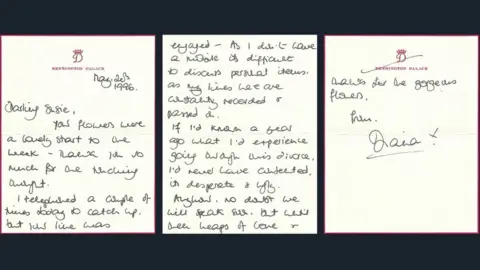 D
KENSINGTON PALACE
May 20th
1996.
Darling Susie,
Your flowers were
a lovely start to the
week - thank you so
much for the touching
thought.
I telephoned a couple of
times today to catch up,
but your line was
engaged - As I don't have
a mobile its difficult
to discuss personal items.
as my lines here are
constantly recorded &
passed on.
If I'd known a year
ago what I'd experience
going through this divorce,
I'd never have consented,
its desperate & ugly.
Anyhow, no doubt we
will speak soon. but until
then heaps of love &
D
KENSINGTON PALACE
thanks for the gorgeous
flowers.
from,
Diana x